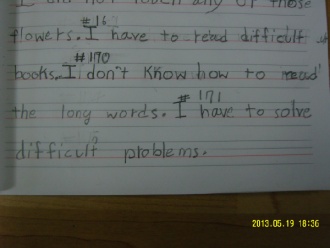 I did not touch any of those
#16
flowers. I have to read difficult
#170
books. I don't know how to read
#171
the long words. I have to solve
difficult problems.
2013.05.19 18:36